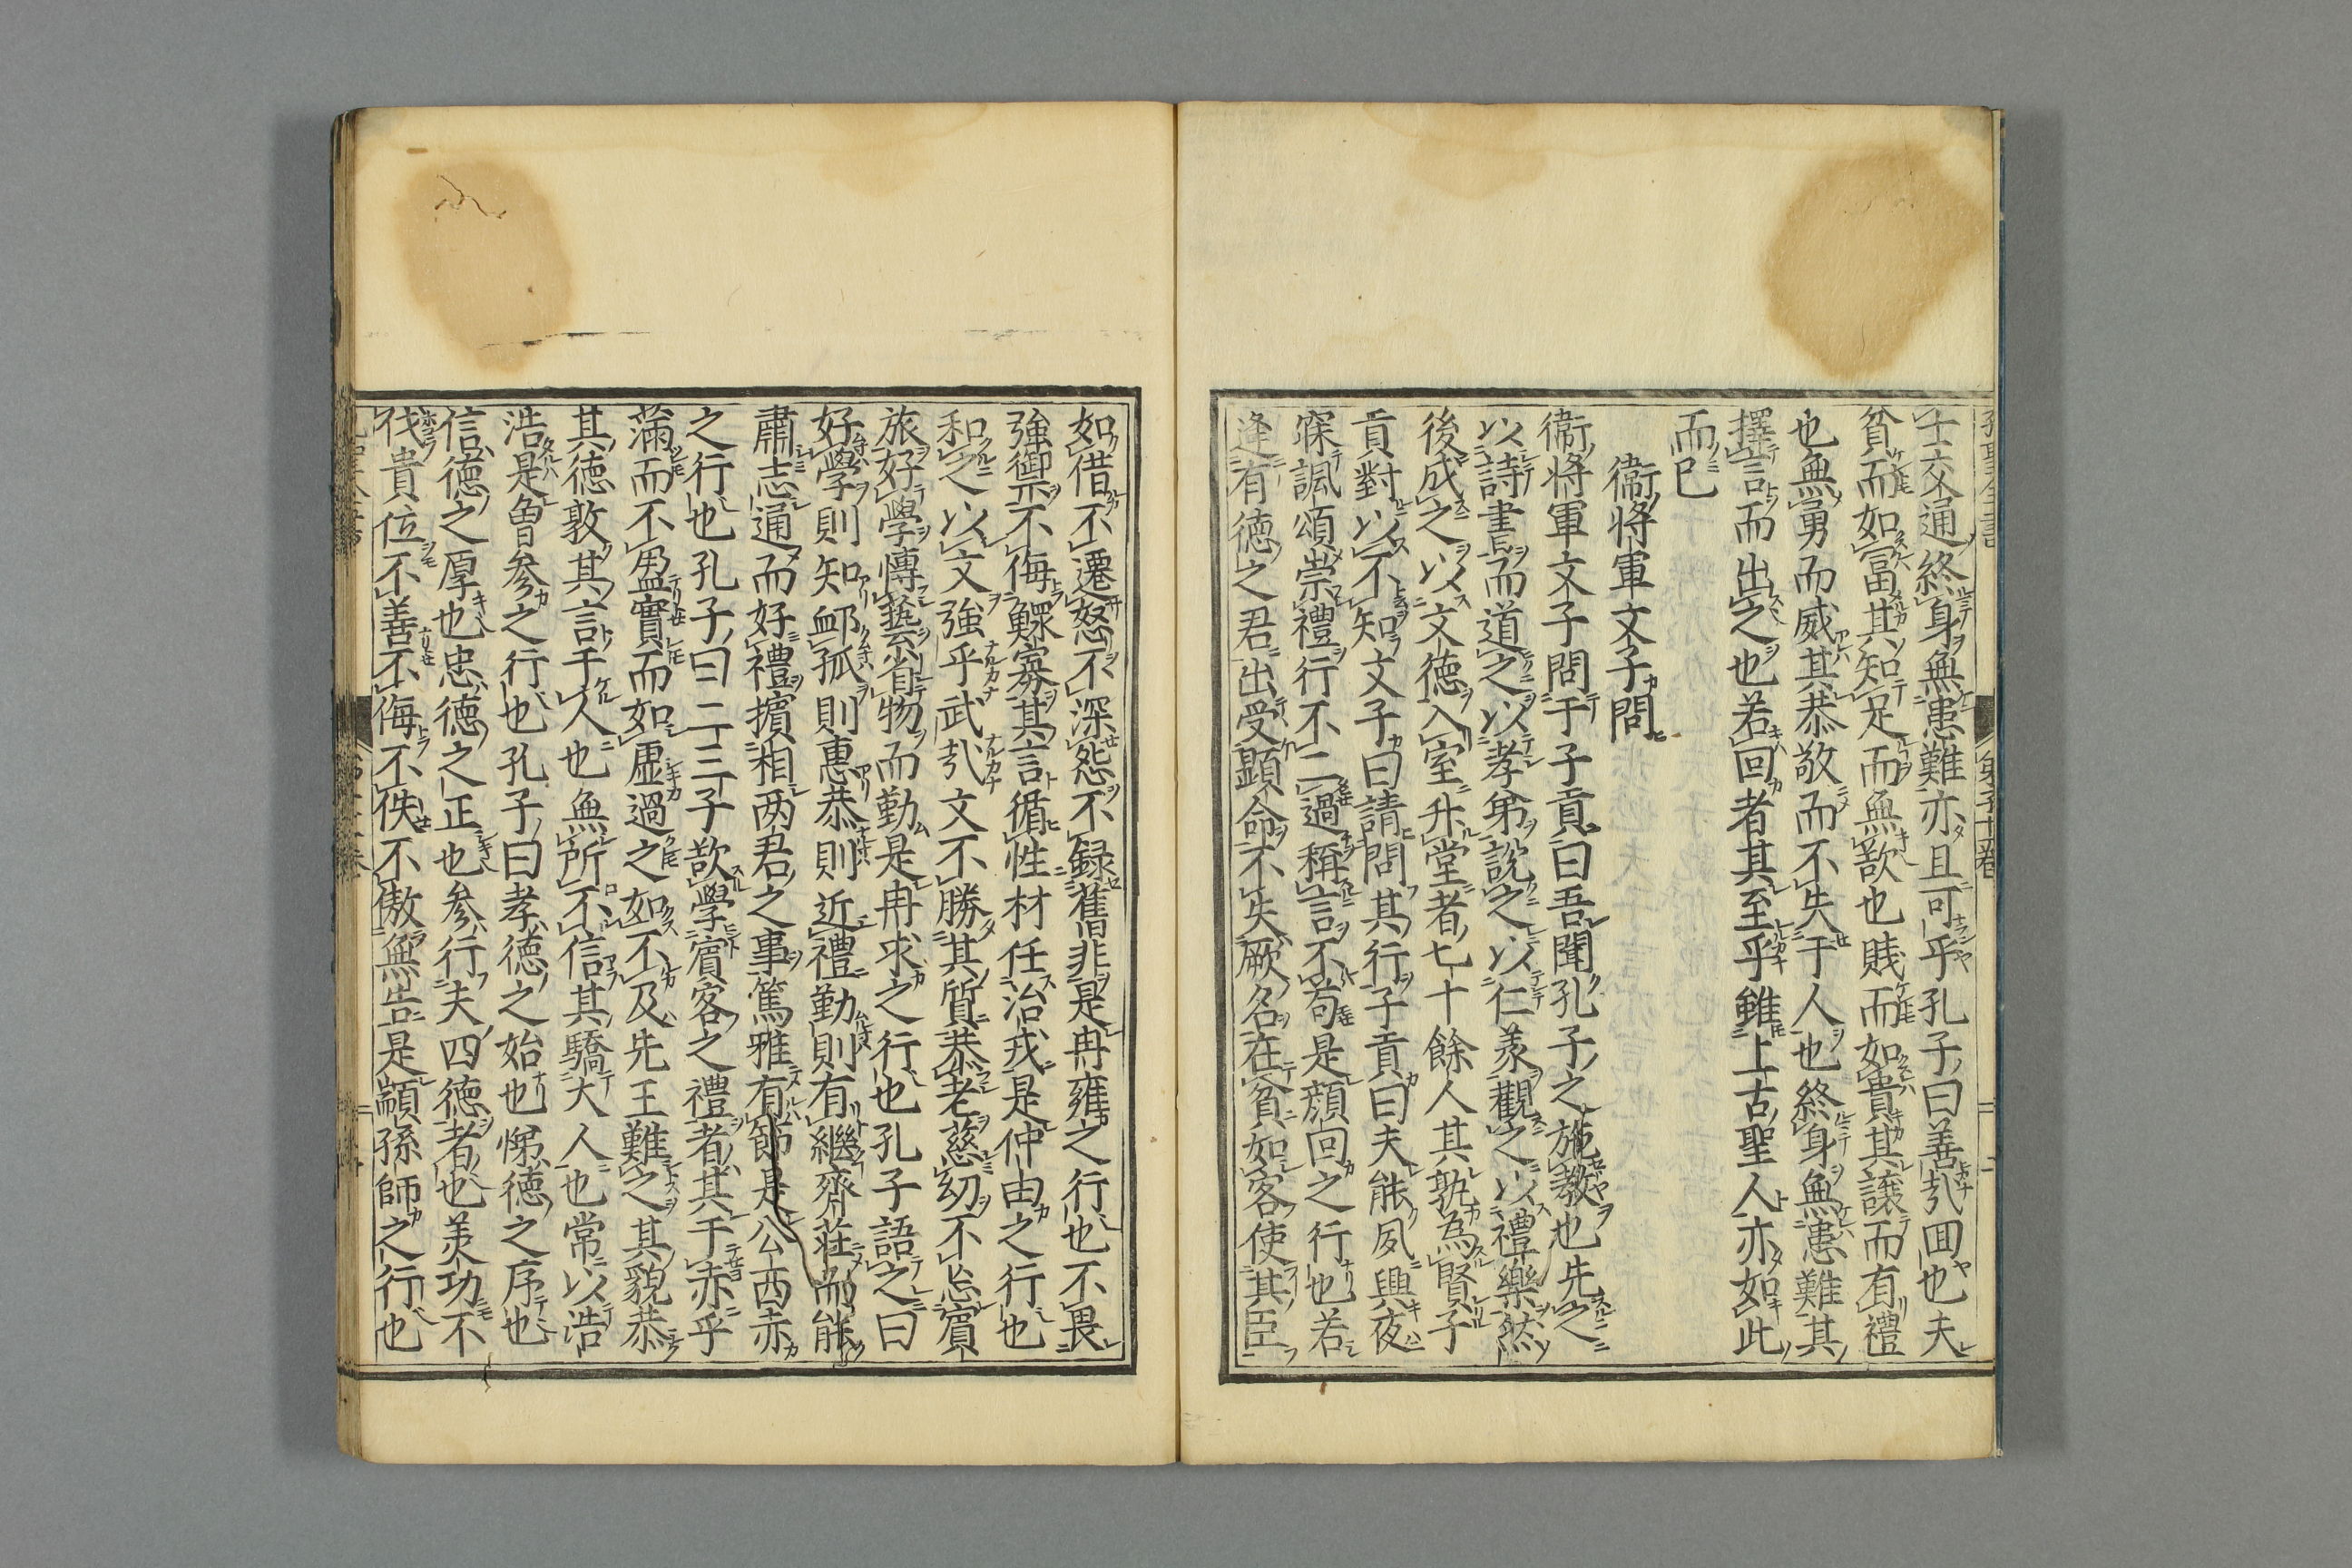 士交通終身無患難亦且可乎孔子曰善哉回也夫
貧而如富其知足而無欲也賤而如貴其讓而有禮
也無勇而威其恭敬而不失于人也終身無患難其
擇言而出之也若回者其至乎雖上古聖人亦如此
而已
衞將軍文子問
衞將軍文子問于子貢曰吾聞孔子之施教也先之
以詩書而道之以孝弟說之以仁義觀之以禮樂然
後成之以文德入室升堂者七十餘人其孰為賢子
貢對以不知文子曰請問其行子貢曰夫能夙興夜
寐諷頌崇禮行不二過稱言不苟是顔回之行也若
逢有德之君出受顯命不失厥名在貧如客使其臣
如借不遷怒不深怨不録舊非是冉雍之行也不畏
強禦不侮鰥寡其言循性材任治戎是仲由之行也
和之以文強乎武哉文不勝其質恭老慈幼不忘賓
旅好學博藝省物而勤是冉求之行也孔子語之曰
好學則知卹孤則惠恭則近禮勤則有繼齊莊而能
肅志通而好禮擯相两君之事篤雅有節是公西赤
之行也孔子曰二三子欲學賓客之禮者其于赤乎
滿而不盈實而如虛過之如不及先王難之其貌恭
其德敦其言于人也無所不信其驕大人也常以浩
浩是曾参之行也孔子曰孝德之始也悌德之序也
信德之厚也忠德之正也参行夫四德者也美功不
伐貴位不善不侮不佚不傲無告是顓孫師之行也